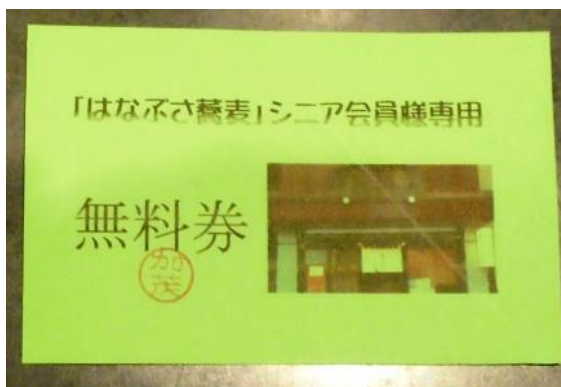 「はなぶさ蕎麦」シニア会員様専用
無料券
加茂